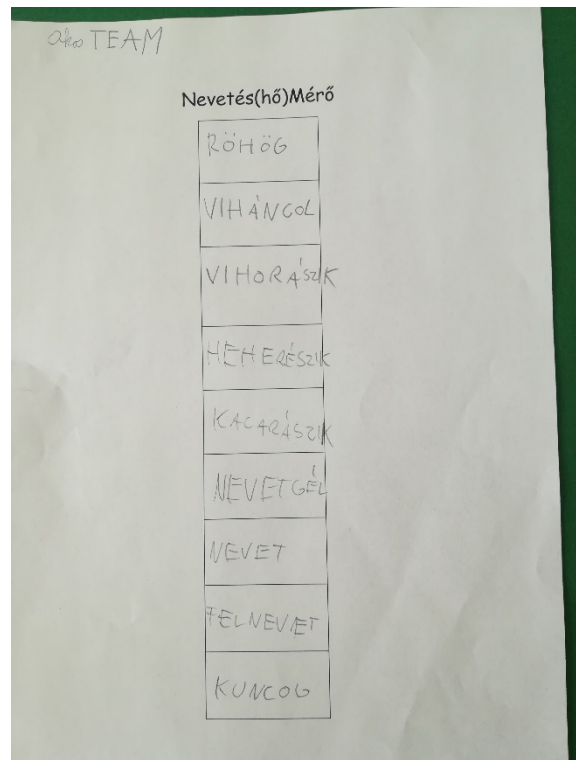 oko TEAM
Nevetés(hő)Mérő
RÖHÖG
VIHÁNCOL
VIHORÁSZIK
HEHERÉSZIK
KACARÁSZIK
NEVETGÉL
NEVET
FELNEVET
KUNCOG